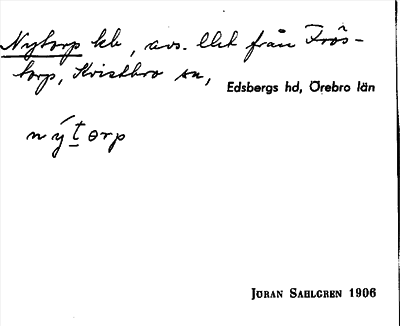 Nytorp kb, avs. llet från Frös-
torp, Kvistbro sn,
Edsbergs hd, Örebro län
nýtorp
JÖRAN SAHLGREN 1906